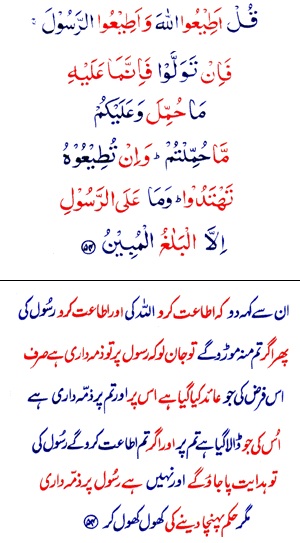 قُلْ اَطِيْعُوا اللّٰهَ وَاَطِيْعُوا الرَّسُوْلَ ۚ
فَاِنْ تَوَلَّوْا فَاِنَّمَا عَلَيْهِ
مَا حُمِّلَ وَعَلَيْكُمْ
مَّا حُمِّلْتُمْ ؕ وَاِنْ تُطِيْعُوْهُ
تَهْتَدُوْا ؕ وَمَا عَلَى الرَّسُوْلِ
اِلَّا الْبَلٰغُ الْمُبِيْنُ ﴿۵۴﴾
ان سے کہہ دو کہ اطاعت کرو اللہ کی اور اطاعت کرو رسُول کی
پھر اگر تم منہ موڑو گے تو جان لو کہ رسول پر تو ذمہ داری ہے صرف
اس فرض کی جو عائد کیا گیا ہے اس پر اور تم پر ذمّہ داری ہے
اُس کی جو ڈالا گیا ہے تم پر اور اگر تم اطاعت کرو گے رسُول کی
تو ہدایت پا جاؤ گے اور نہیں ہے رسُول پر ذمّہ داری
مگر حکم پہنچا دینے کی کھول کھول کر ﴿۵۴﴾